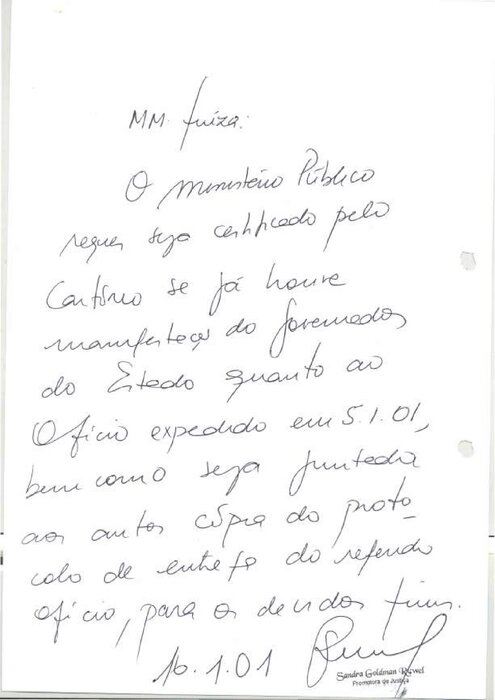 MM. Juíza:
O Ministério Público
requer seja certificado pelo
Cartório se já houve
manifestaçç do Governador
do Estado quanto ao
Ofício expedido em 5.1.01,
bem como seja juntada
aos autos cópia do proto-
colo de entrega do referido
ofício, para os devidos fins.
16.1.01
Sandra Goldman
Promotora de Justiça